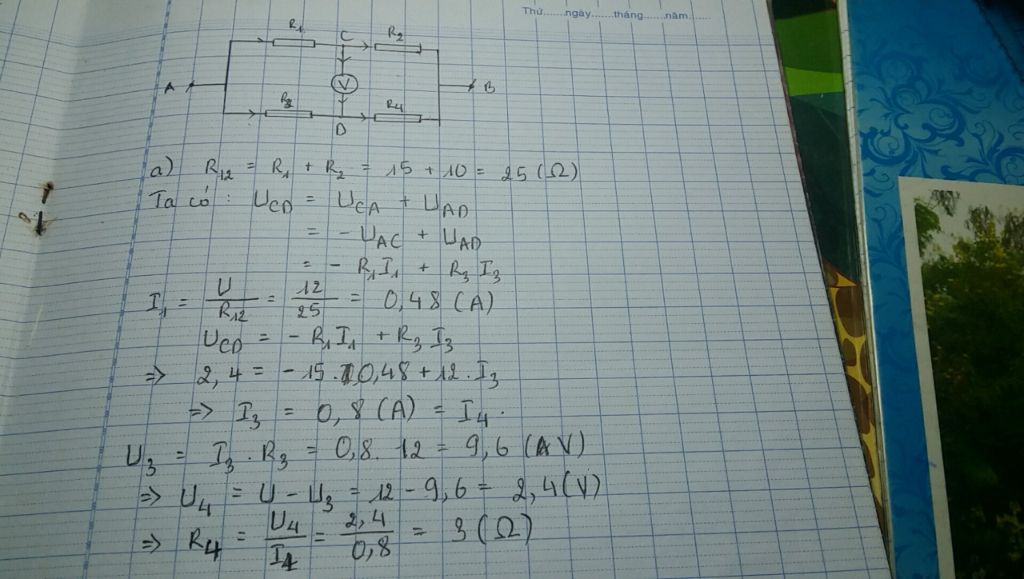 Thứ......ngày......tháng......năm......
R1 C R2
A V B
R3 R4
D
a) R12 = R1 + R2 = 15 + 10 = 25 (Ω)
Ta có : UCD = UCA + UAD
= - UAC + UAD
= - R1I1 + R3I3
I1 = U/R12 = 12/25 = 0,48 (A)
UCD = - R1I1 + R3I3
=> 2,4 = - 15.0,48 + 12.I3
=> I3 = 0,8 (A) = I4.
U3 = I3 . R3 = 0,8. 12 = 9,6 (V)
=> U4 = U - U3 = 12 - 9,6 = 2,4 (V)
=> R4 = U4/I4 = 2,4/0,8 = 3 (Ω)